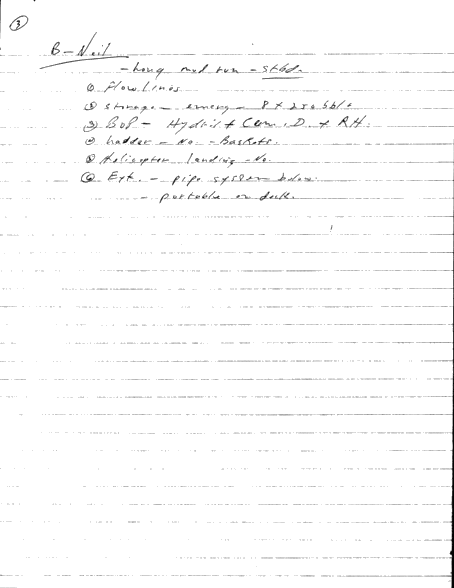 ③
B-Neil
- long mud run - stbd.
① Flow lines
② storage - emerg - 8 x 250 bbls
③ BOP - Hydril + Cam. D. + RH.
④ Ladder - No. - Baskets.
⑤ Helicopter landing - No.
⑥ Ext. - pipe system below
- portable on deck.